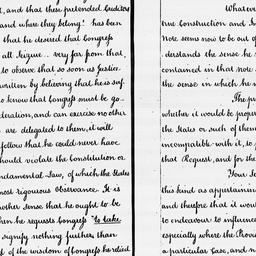 t, and that these pretended Creditors
and where they belong! has been
that he desired that Congress
all Seizure... very far from that,
to observe that so soon as Justice
written by believing that he is suf
to know that Congress must be go
deration, and can exercise no other
are delegated to them, it will
follow that he could never have
should violate the Constitution or
undamental Law, of which the States
most rigourous observance. It is
nother Sense that he ought to be
hen he requests Congress "to take
signify nothing further than
of the wisdom of Congress he relied
Whatever
true Construction and In
Note seems now to be out of
derstands the sense he s
contained in that note
the sense in which
The pr
whether it would be proper
the States or such of them
incompatible with it, to p
that Request, and for the
Your Se
this kind as appertaining
and therefore that it woul
to endeavour to influence
especially where the Provi
a particular Case, and n